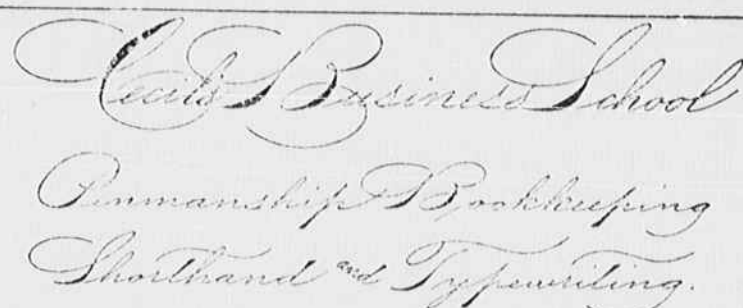 Cecil's Business School
Penmanship Bookkeeping
Shorthand and Typewriting.